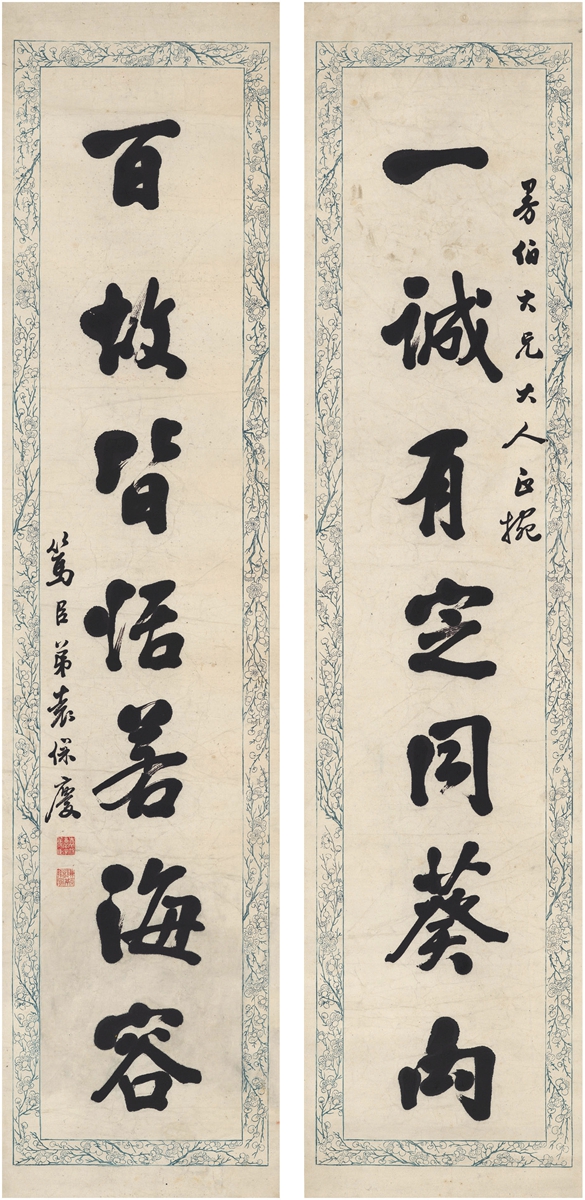 一誠有定同葵向
伯大兄大人正捥
百故皆恬若海容
篤臣弟袁保慶